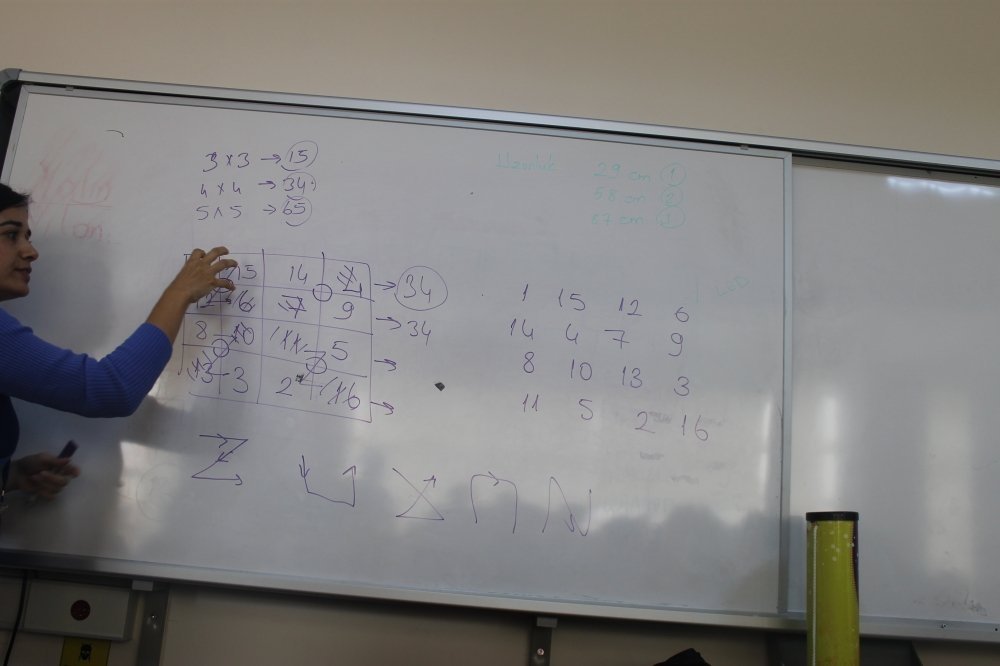 3 x 3 → 15
4 x 4 → 34
5 x 5 → 65
29 cm 1
58 cm 2
87 cm 1
15 14 → 34
12 6 7 9 → 34
8 10 11 5 →
13 3 2 16 →
1 15 12 6
14 4 7 9
8 10 13 3
11 5 2 16